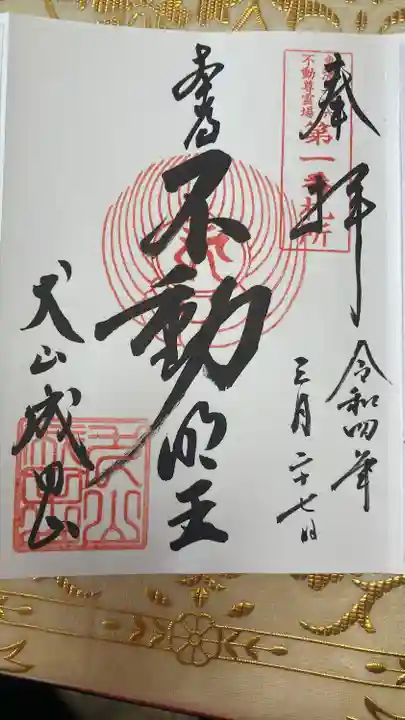 奉拝
不動尊霊場
第一番札所
令和四年
三月二十七日
本尊
不動明王
犬山成田山